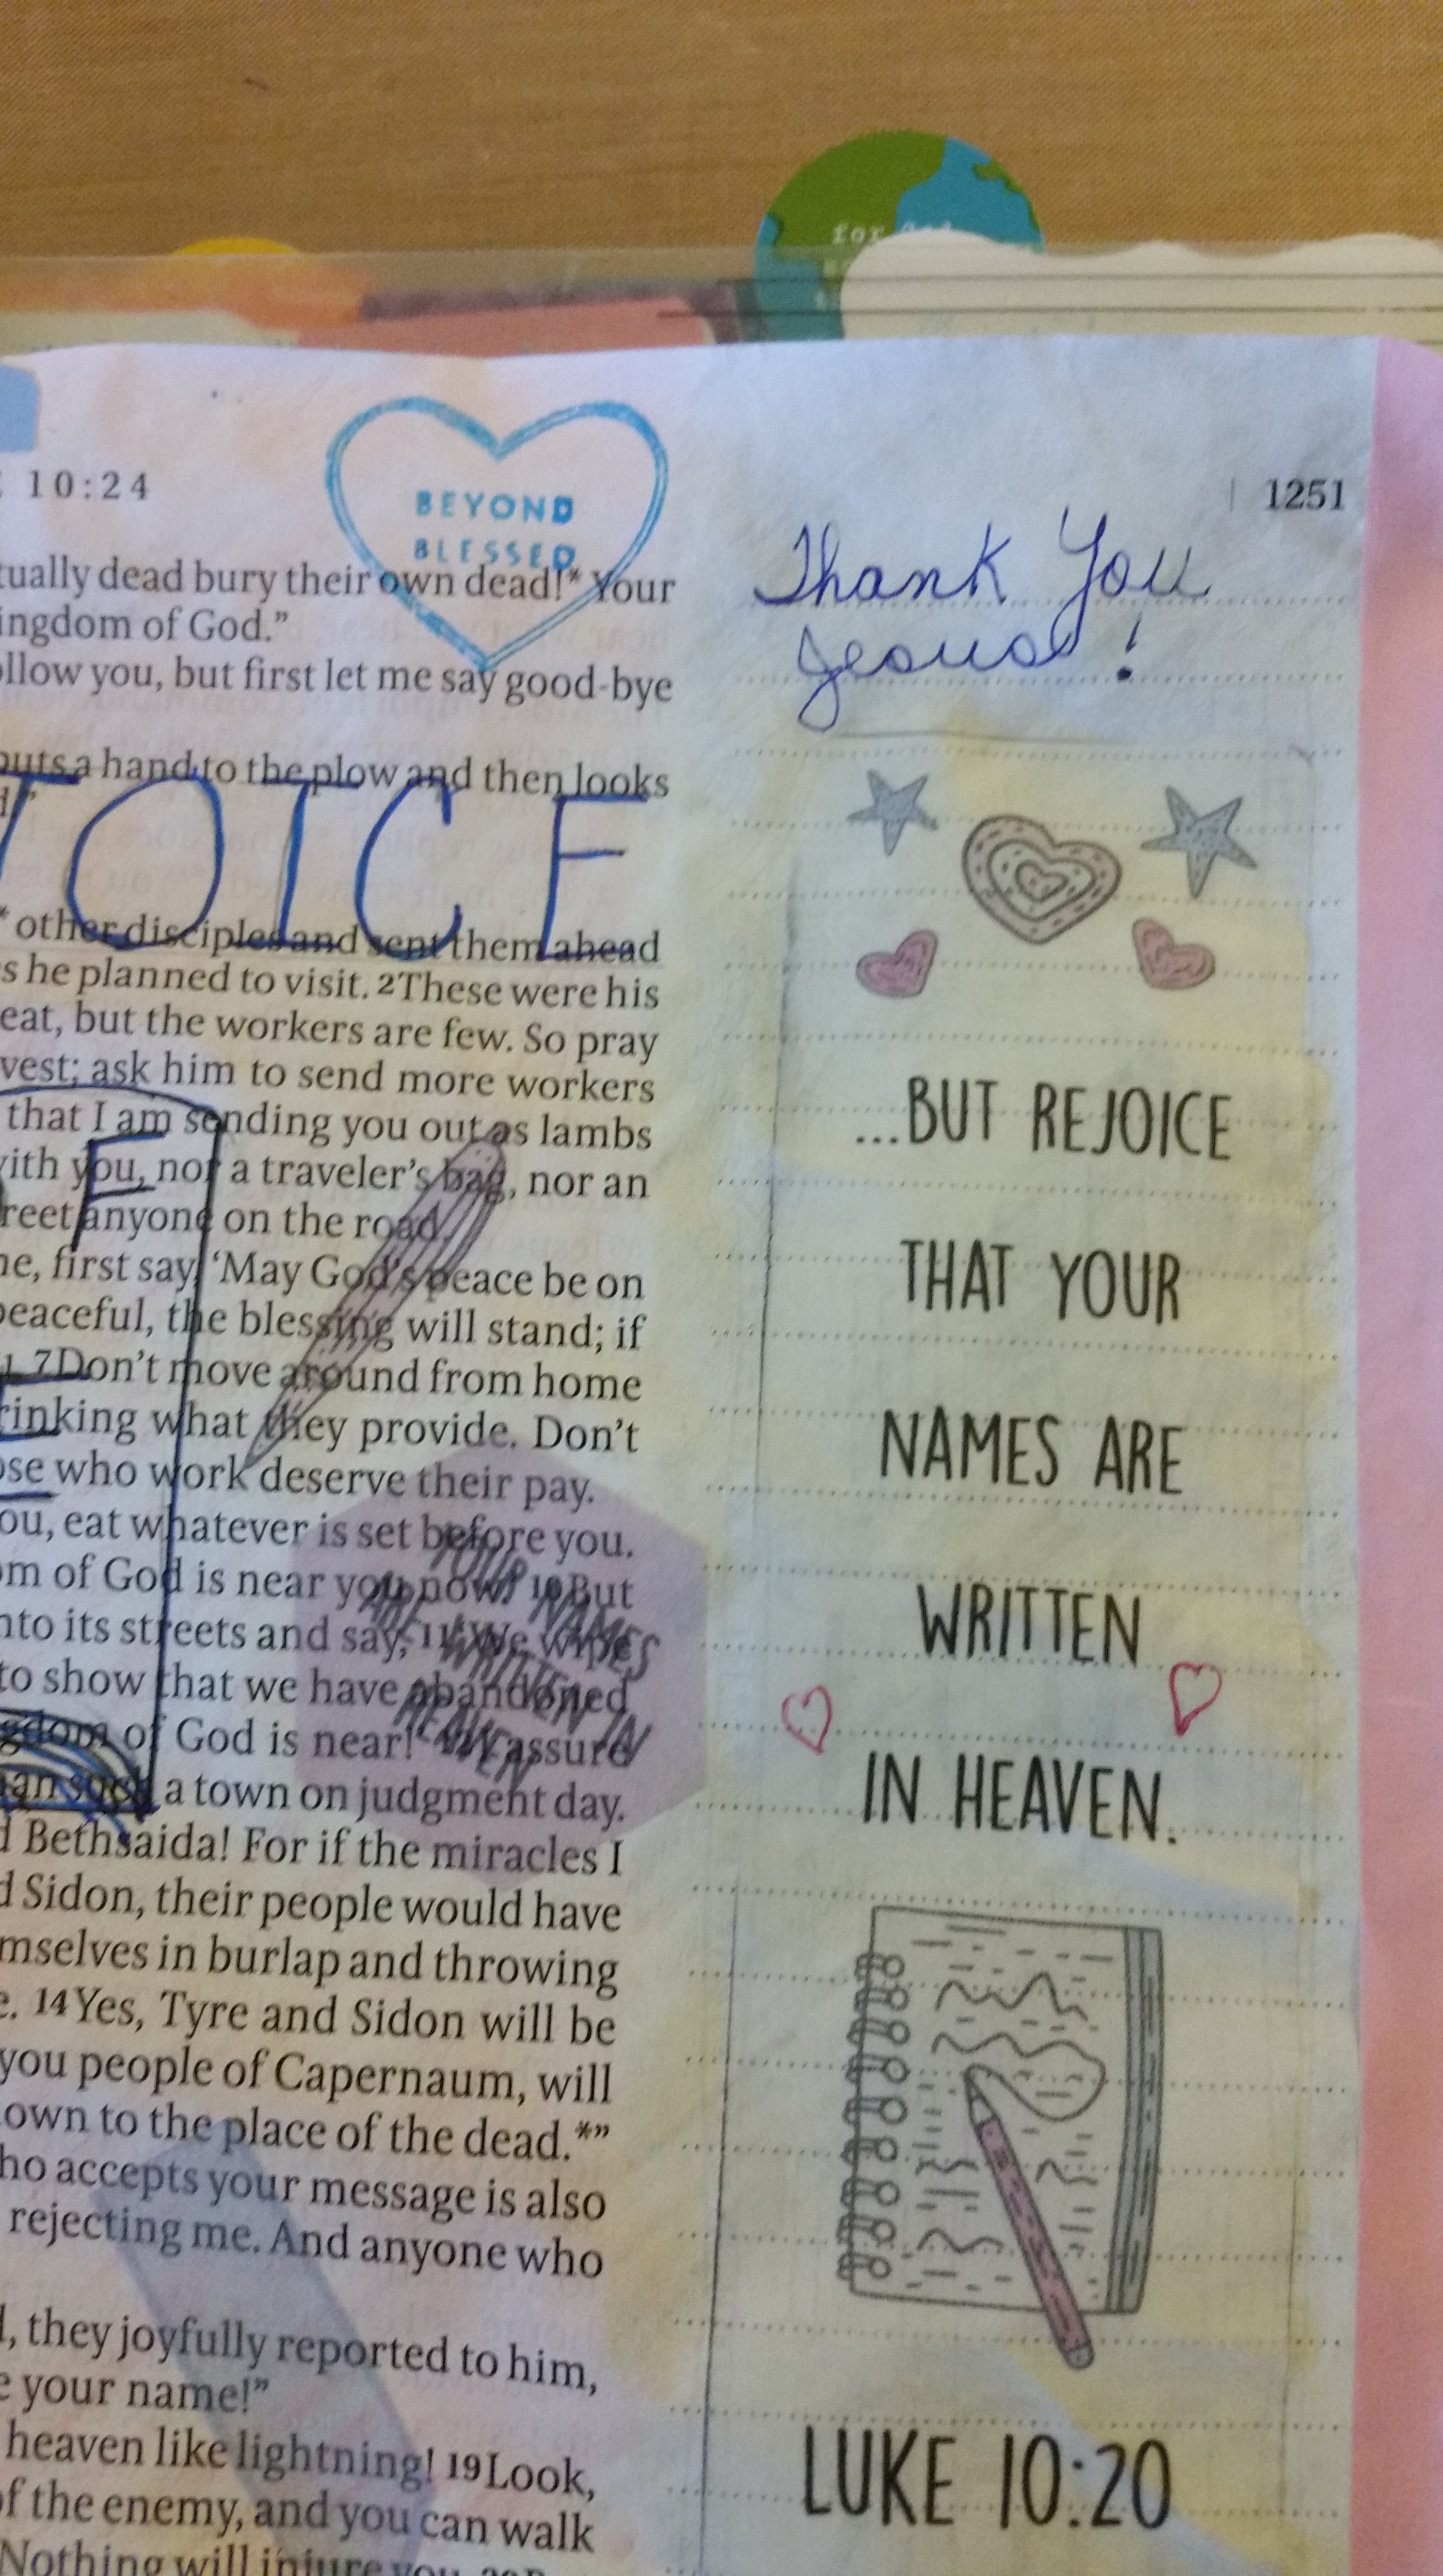 for God
10:24
1251
BEYOND
BLESSED
tually dead bury their own dead!* Your
ingdom of God.”
ollow you, but first let me say good-bye
puts a hand to the plow and then looks
OICE
* other disciples and sent them ahead
s he planned to visit. 2These were his
eat, but the workers are few. So pray
vest; ask him to send more workers
that I am sending you out as lambs
with you, nor a traveler’s bag, nor an
reet anyone on the road.
ne, first say, ‘May God’s peace be on
peaceful, the blessing will stand; if
7Don’t move around from home
rinking what they provide. Don’t
ose who work deserve their pay.
ou, eat whatever is set before you.
om of God is near you now.’ 10But
nto its streets and say, 11‘We wipe
to show that we have abandoned
gdom of God is near!’ 12I assure
an such a town on judgment day.
d Bethsaida! For if the miracles I
d Sidon, their people would have
mselves in burlap and throwing
e. 14Yes, Tyre and Sidon will be
you people of Capernaum, will
own to the place of the dead.*”
ho accepts your message is also
rejecting me. And anyone who
d, they joyfully reported to him,
e your name!”
heaven like lightning! 19Look,
of the enemy, and you can walk
Nothing will injure you. 20
YOUR
NAMES
ARE
WRITTEN IN
HEAVEN
Thank You
Jesus!
...BUT REJOICE
THAT YOUR
NAMES ARE
WRITTEN
IN HEAVEN.
LUKE 10:20